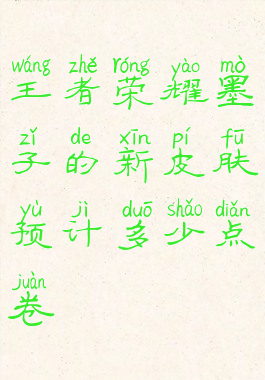 wáng zhě róng yào mò
王者荣耀墨
zǐ de xīn pí fū
子的新皮肤
yù jì duō shǎo diǎn
预计多少点
juàn
卷